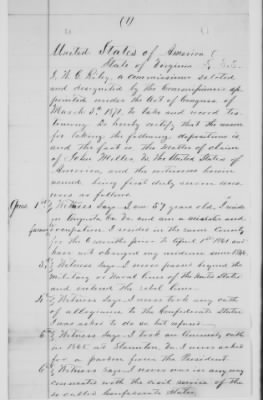 (1)
United States of America }
State of Virginia } To Wit:
I, W. G. Riley, a commissioner selected
and designated by the Commissioners ap-
pointed under the Act of Congress of
March 3rd 1871, to take and record tes-
timony Do hereby certify that the reason
for taking the following depositions is
and the fact is the matter of claim
of John Miller vs The United States of
America, and the witnesses herein
named being first duly sworn and
says as follows
Ques 1st Witness Says I am 57 years old. I reside
in Augusta Co Va and am a
farmer occupation. I resided in the same County
for the 6 months prior to April 1st 1861 and
have not changed my residence since that
3rd Witness Says I never passed beyond the
military or Naval lines of the United States
and entered the rebel lines
4th Witness Says I never took any oath
of allegiance to the Confederate States
I was asked to do so but refused
5th Witness Says I took an amnesty oath
in 1865 at Staunton Va I never asked
for a pardon from the President
6th Witness Says I never was in any way
connected with the civil service of the
so called Confederate States